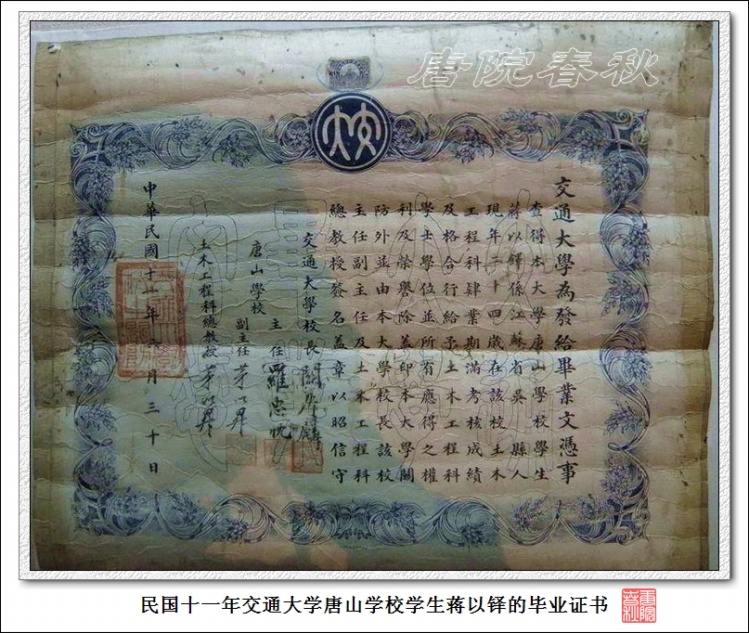 唐院春秋
交通大學為發給畢業文憑事
查得本大學唐山學校學生
蔣以鐸係江蘇省吳縣人
現年二十四歲在該校土木
工程科肄業期滿考核成績
及格合行給予土木工程科
學士學位並所有應得之權
利及榮譽除蓋印本大學關
防外並由本大學校長該校
主任副主任及土木工程科
總教授簽名蓋章以昭信守
交通大學校長
唐山學校
主任 羅忠忱
副主任 茅以昇
土木工程科總教授 茅以昇
中華民國十一年六月三十日
民国十一年交通大学唐山学校学生蒋以铎的毕业证书